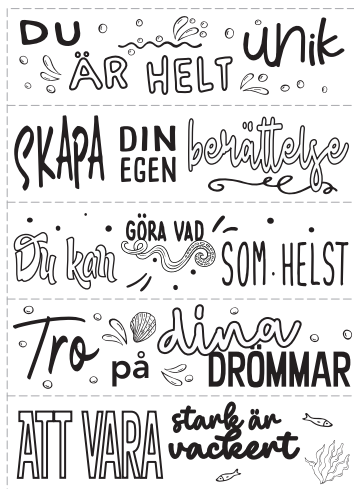 DU ÄR HELT unik
SKAPA DIN EGEN berättelse
Du kan GÖRA VAD SOM HELST
Tro på dina DRÖMMAR
ATT VARA stark är vackert